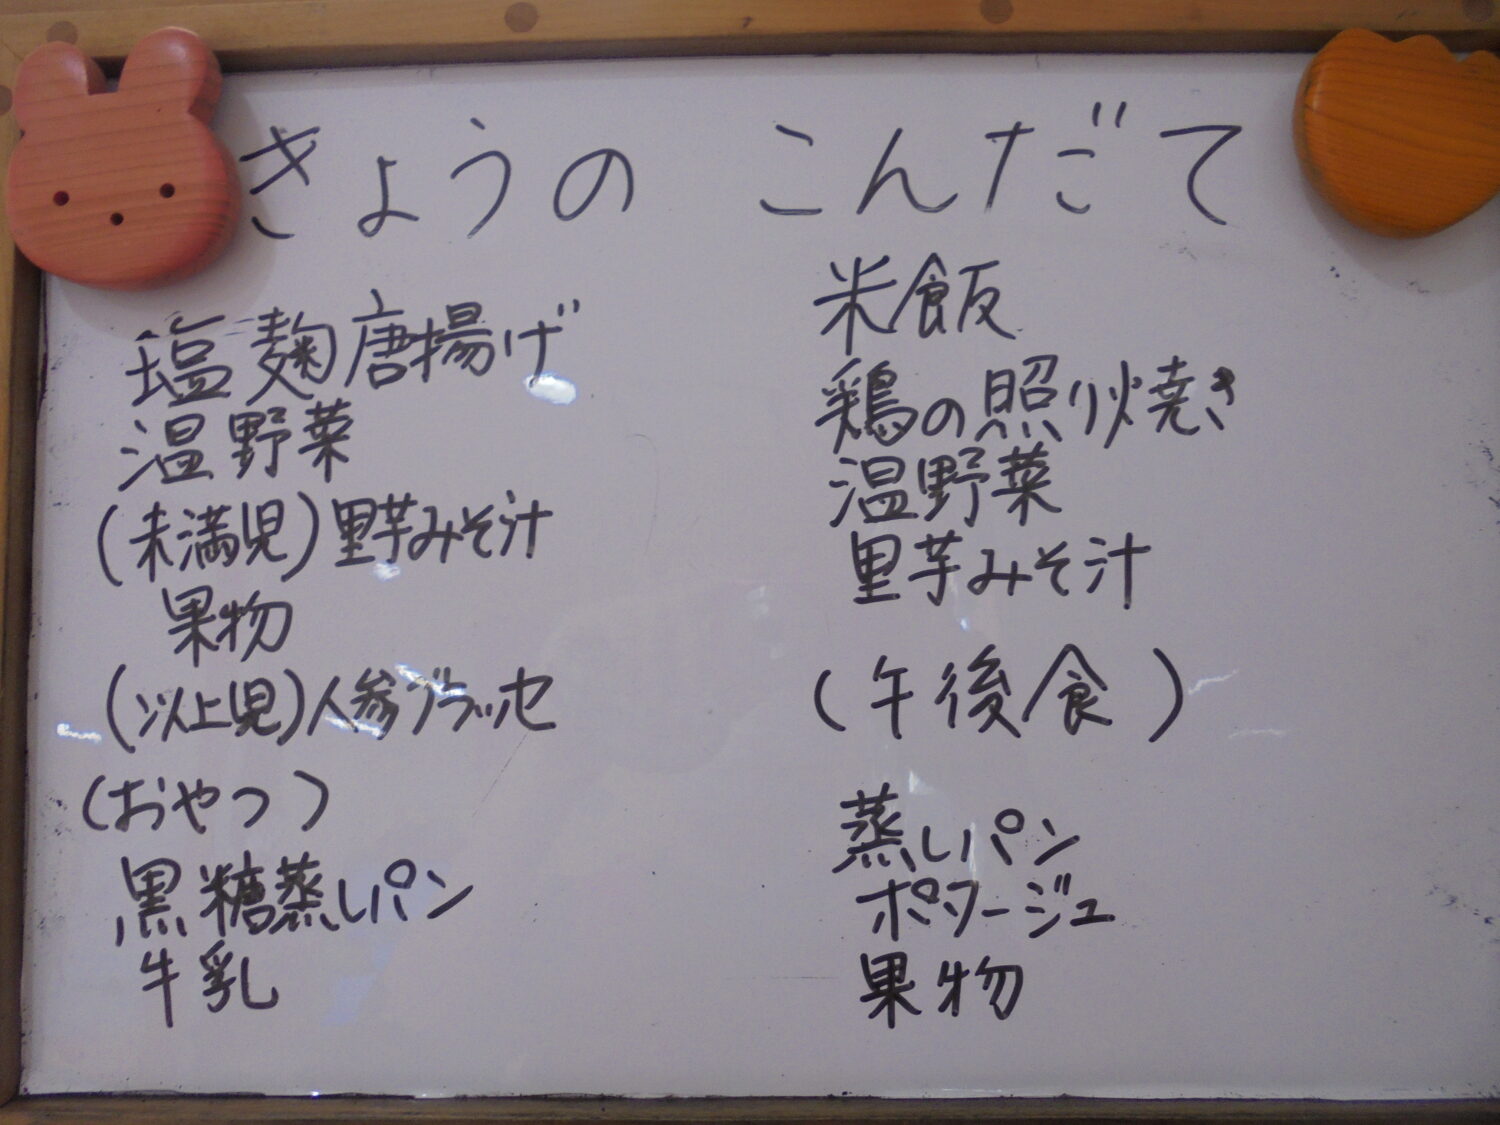 きょうの こんだて
塩麹唐揚げ
温野菜
(未満児)里芋みそ汁
果物
(以上児)人参ブラッセ
(おやつ)
黒糖蒸しパン
牛乳
米飯
鶏の照り焼き
温野菜
里芋みそ汁
(午後食)
蒸しパン
ポタージュ
果物